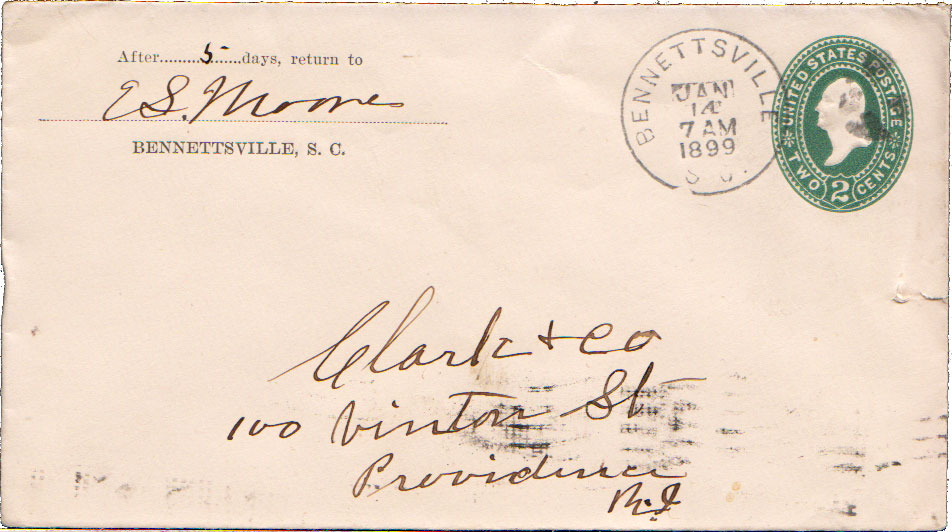 After.........5......days, return to
E S. Moore
BENNETTSVILLE, S. C.
BENNETTSVILLE
JAN
14
7 AM
1899
S C.
UNITED STATES POSTAGE
TWO 2 CENTS
Clark + Co
100 Vinton St
Providence
R.I